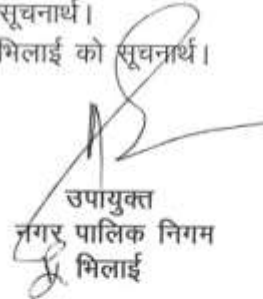 सूचनार्थ।
भिलाई को सूचनार्थ।
उपायुक्त
नगर पालिक निगम
भिलाई